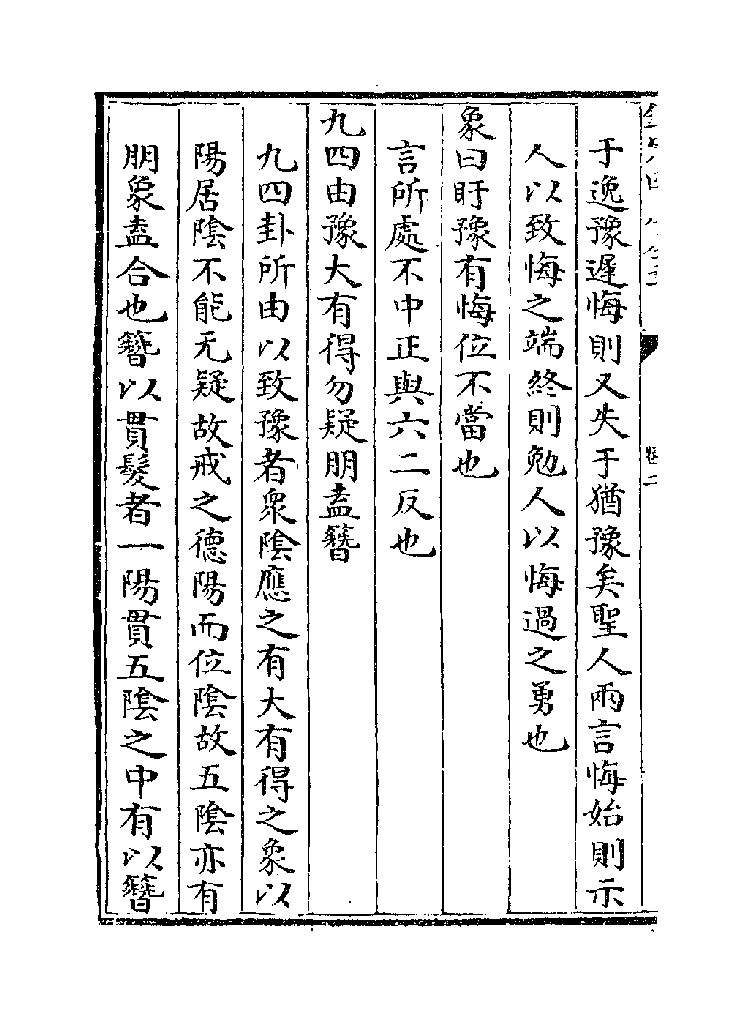 于逸豫遲悔則又失于猶豫矣聖人兩言悔始則示
人以致悔之端終則勉人以悔過之勇也
象曰盱豫有悔位不當也
言所處不中正與六二反也
九四由豫大有得勿疑朋盍簪
九四卦所由以致豫者衆陰應之有大有得之象以
陽居陰不能无疑故戒之德陽而位陰故五陰亦有
朋象盍合也簪以貫髮者一陽貫五陰之中有以簪